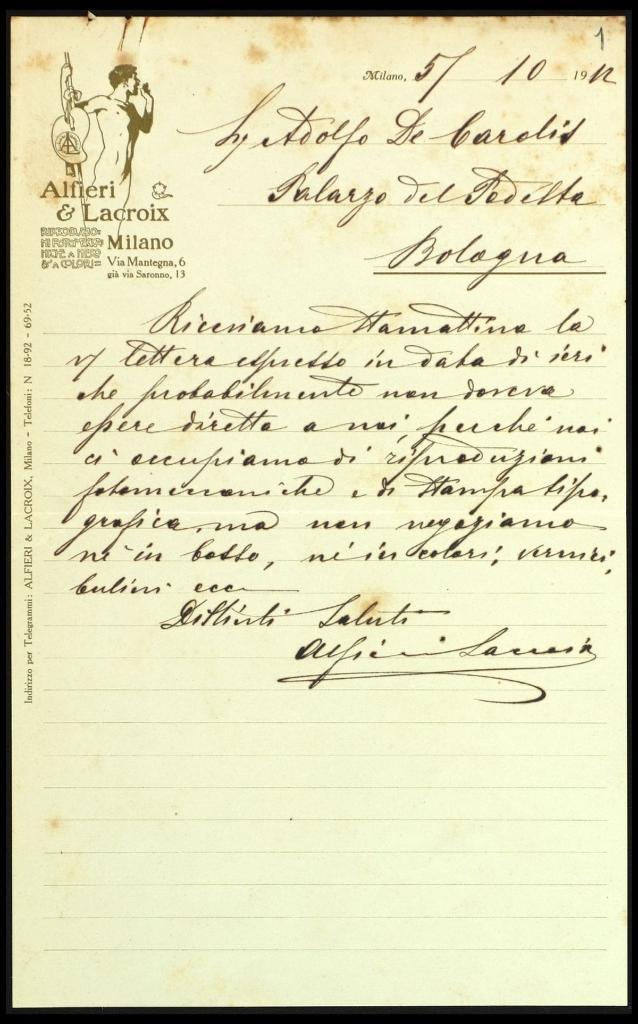 1
Milano, 5/ 10 1912
Sig Adolfo De Carolis
Palazzo del Podestà
Bologna
Alfieri
& Lacroix
Milano
RIPRODUZIO=
NI FOTOMECCA=
NICHE A NERO
& A COLORI=
Via Mantegna, 6
già via Saronno, 13
Indirizzo per Telegrammi: ALFIERI & LACROIX, Milano - Telefoni: N 18-92 - 69-52
Riceviamo stamattina la
v/ lettera espresso in data di ieri
che probabilmente non doveva
essere diretta a noi, perchè noi
ci occupiamo di riproduzioni
fotomeccaniche e di stampa tipo-
grafica, ma non negoziamo
nè in bosso, nè in colori, vernici,
bulini ecc
Distinti Saluti
Alfieri Lacroix